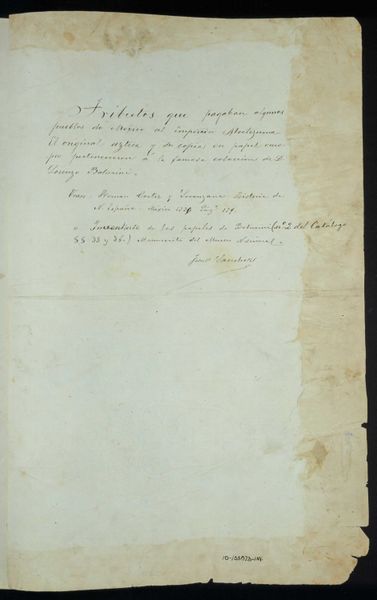 Tributos que pagaban algunos
pueblos de México al imperio Moctezuma.
El original azteca y su copia en papel
pertenecieron á la famosa coleccion de D.
Lorenzo Boturini.
Hernan Cortés y Lorenzana Historia de
N. España. México Pag.
Inventario de los papeles de Boturini (nº 2 del Catálogo
§§ 33 y 36.) Manuscrito del Museo Nacional.
Sanchez